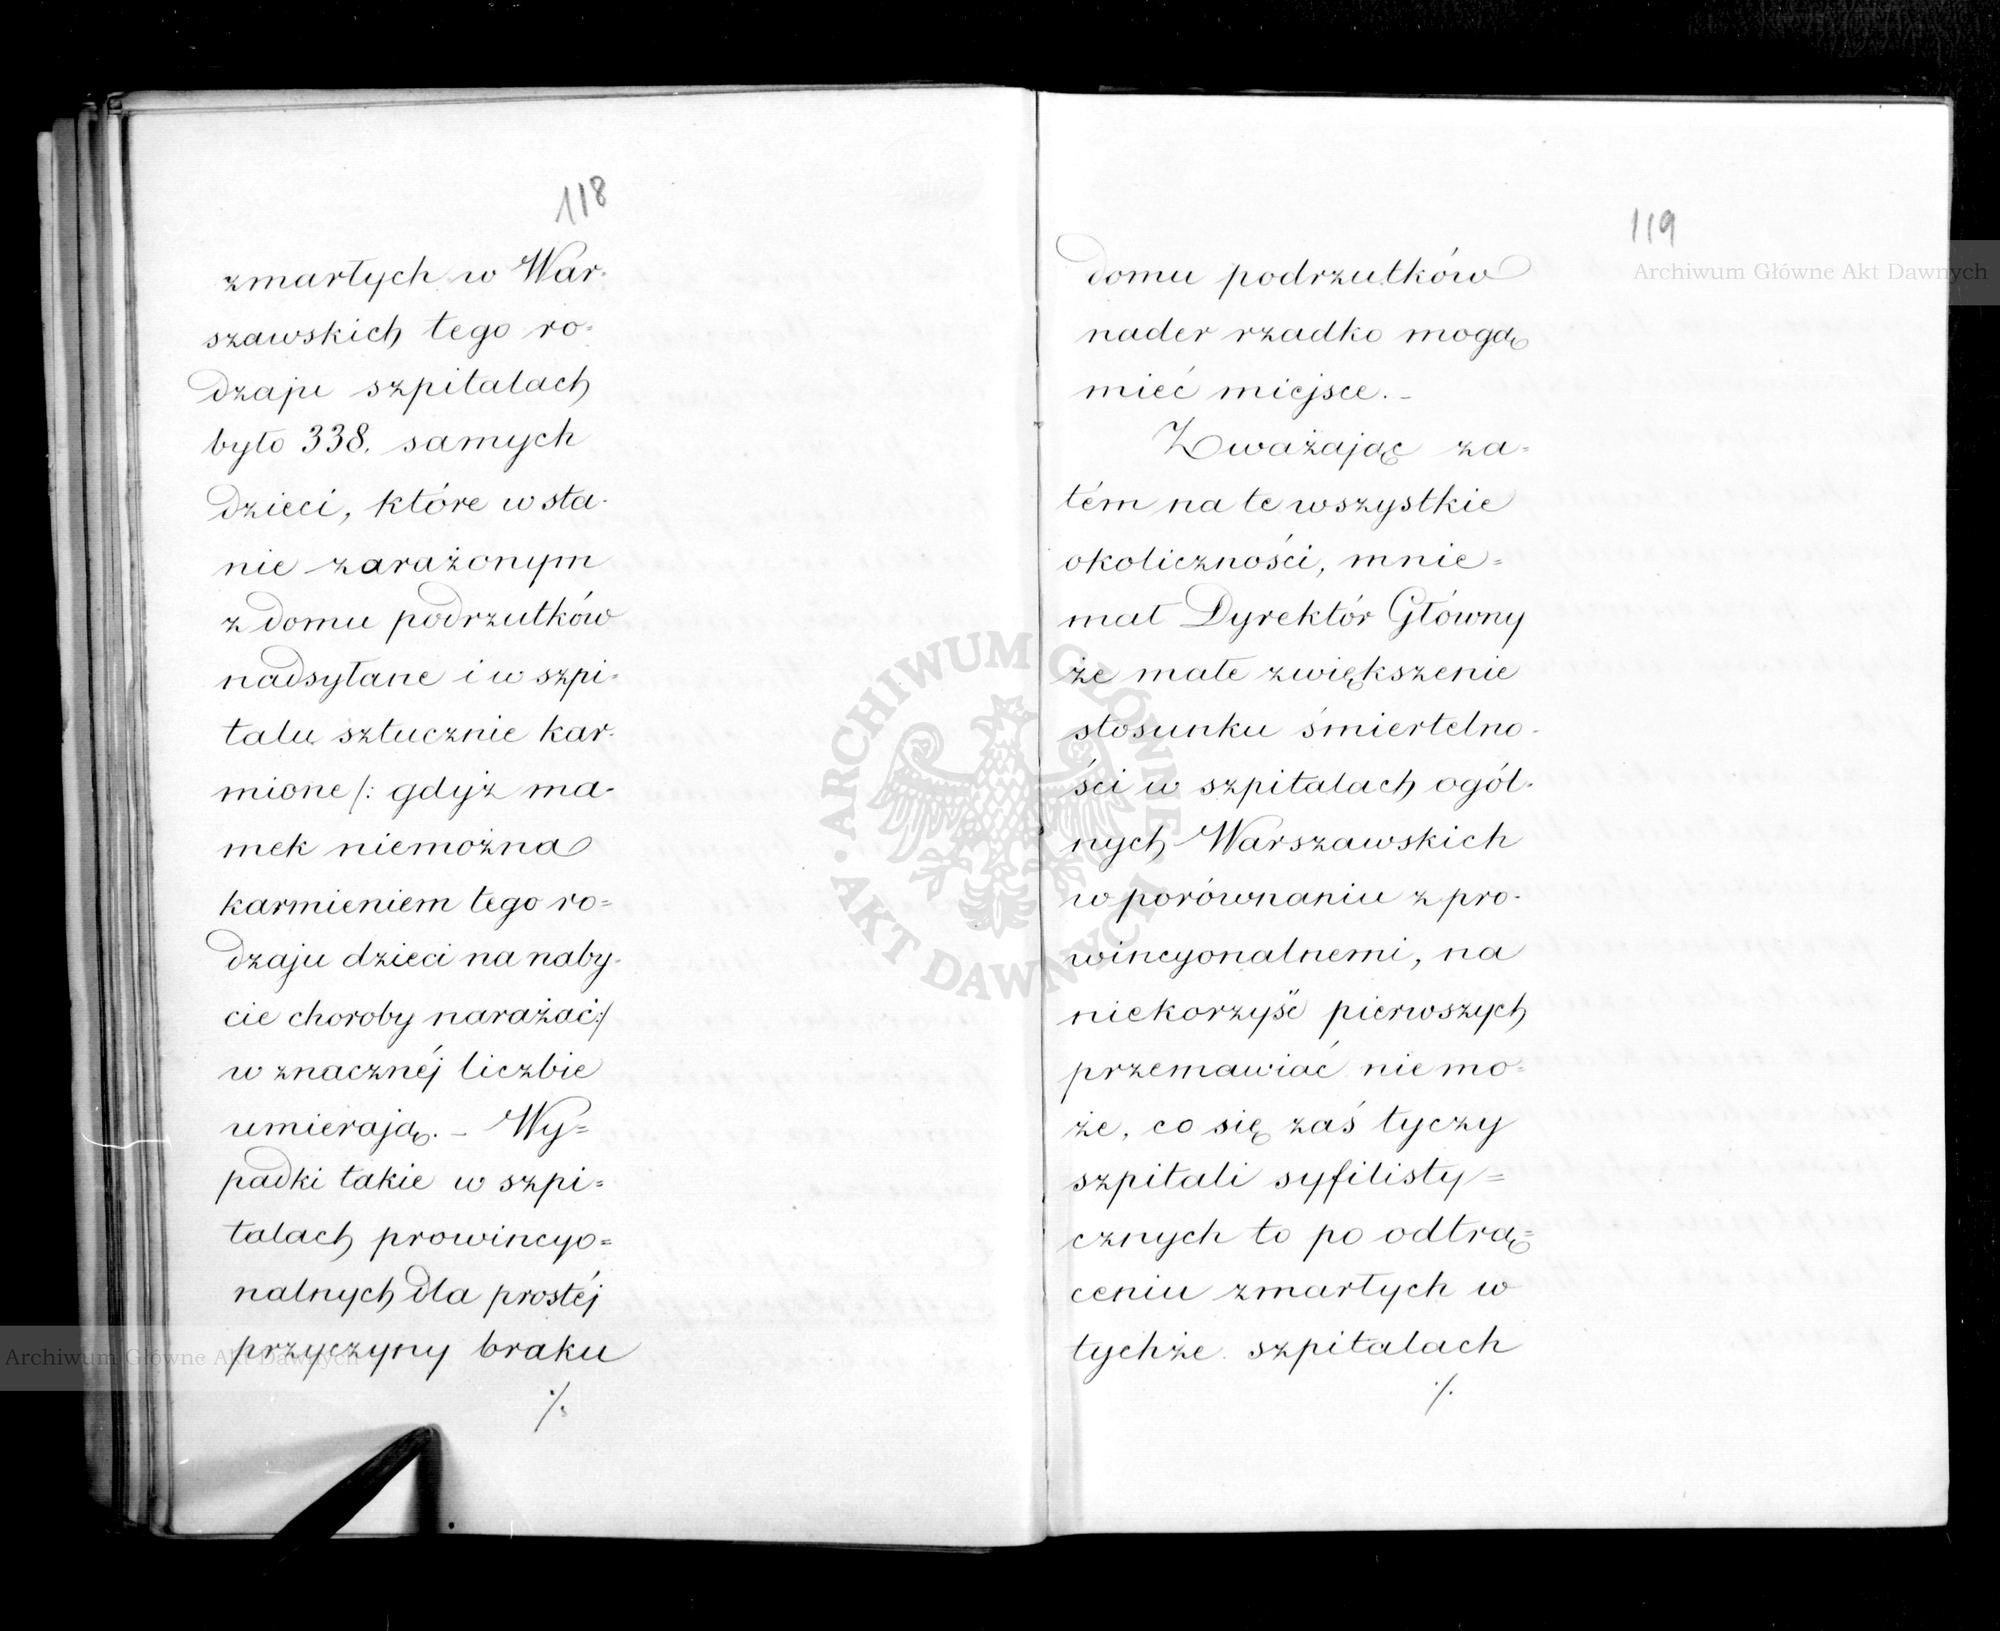 118
zmarłych w War-
szawskich tego ro-
dzaju szpitalach
było 338. samych
dzieci, które w sta-
nie zarażonym
z domu podrzutków
nadsyłane i w szpi-
talu sztucznie kar-
mione /: gdyż ma-
mek niemożna
karmieniem tego ro=
dzaju dzieci na naby-
cie choroby narażać :/
w znacznéj liczbie
umierają. – Wy=
padki takie w szpi=
talach prowincyo=
nalnych dla prostéj
przyczyny braku
./.
119
domu podrzutków
nader rzadko mogą
mieć miejsce. –
Zważając za=
tém na te wszystkie
okoliczności, mnie=
mał Dyrektór Główny
że małe zwiększenie
stosunku śmiertelno-
ści w szpitalach ogól-
nych Warszawskich
w porównaniu z pro-
wincyonalnemi, na
niekorzyść pierwszych
przemawiać niemo=
że, co się zaś tyczy
szpitali syfilisty=
cznych to po odtrą=
ceniu zmarłych w
tychże szpitalach
./.
Archiwum Główne Akt Dawnych
Archiwum Główne Akt Dawnych
ARCHIWUM GŁÓWNE AKT DAWNYCH